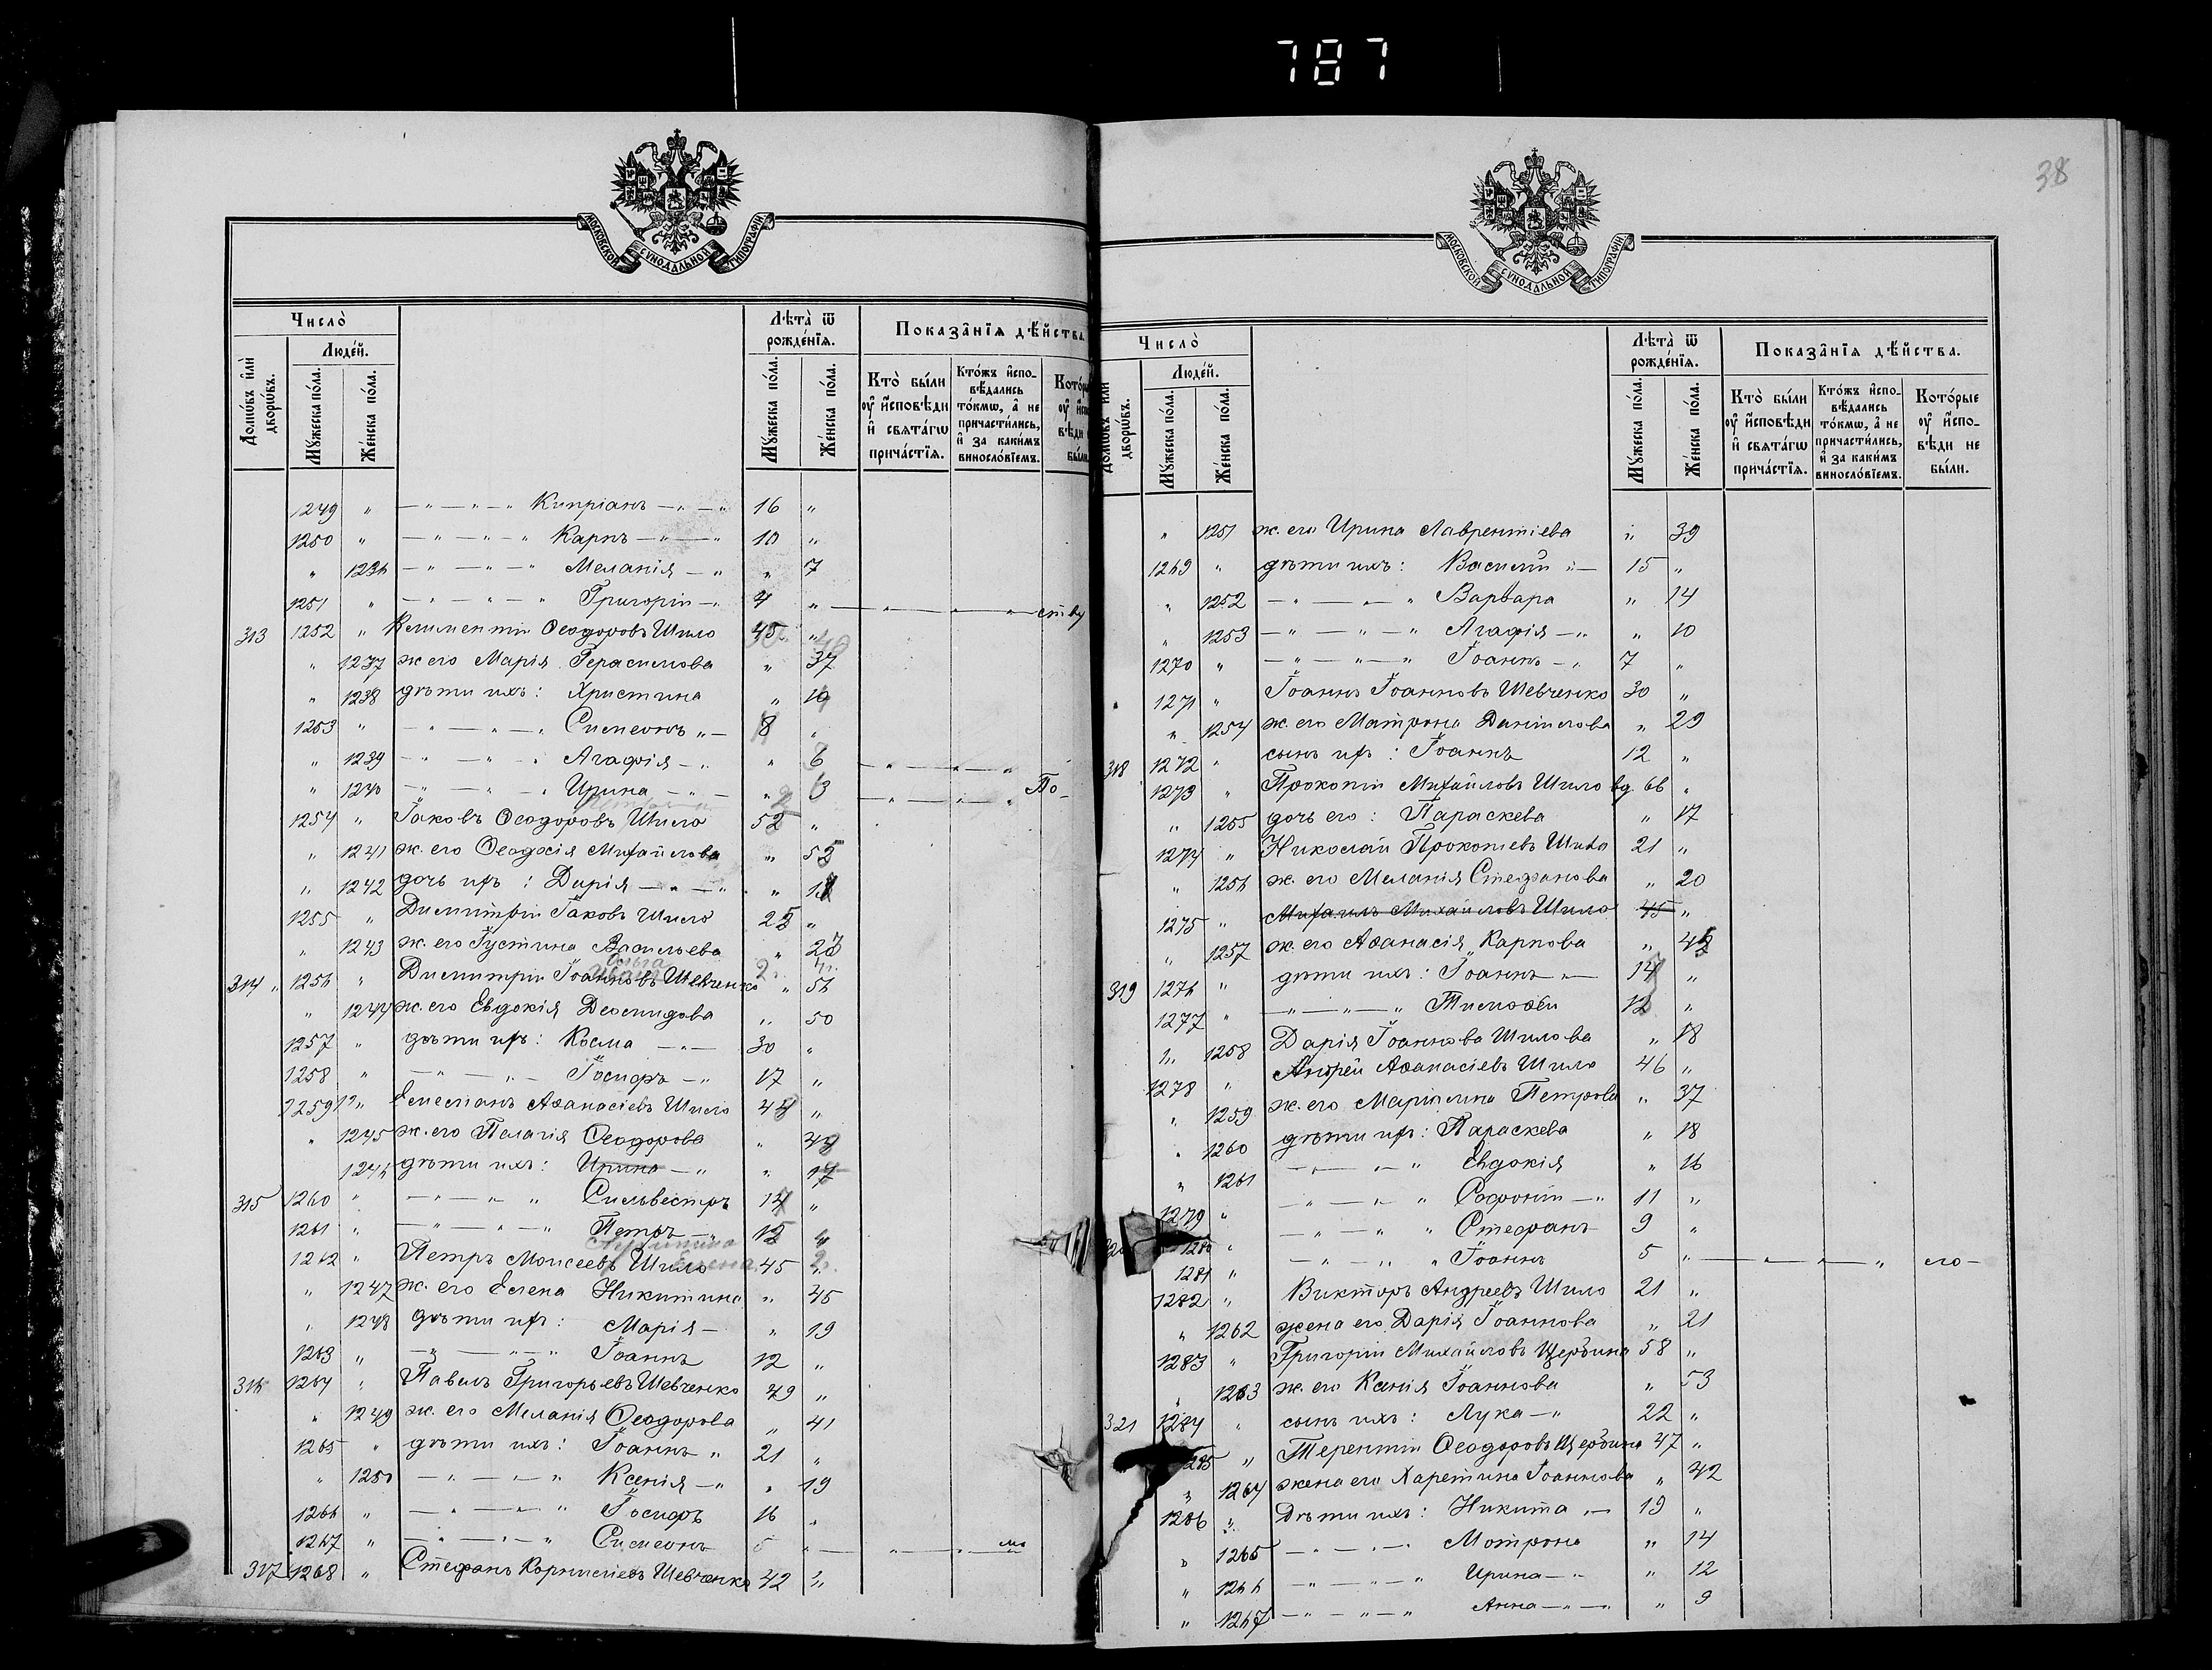 787
38
МОСКОВСКОЙ СѴНОДАЛЬНОЙ ТИПОГРАФІИ
Число̀
Людей.
Домѡвъ и҆лѝ дворѡвъ.
Мꙋжеска по́ла.
Же́нска по́ла.
Лѣта̀ ѿ рожде́нїѧ.
Мꙋжеска по́ла.
Же́нска по́ла.
Показа̑нїѧ дѣ́йства
Кто̀ бы́ли ᲂу҆ и҆сповѣди и҆ свѧта́гѡ прича́стїѧ.
Кто́жъ и҆сповѣдались то́кмѡ, а҆ не причасти́лись, и҆ за каки́мъ винослові́емъ.
1249 " — " — " — " Кипріанъ — " — " 16 "
1250 " — " — " — " Карпъ — " — " 10 "
" 1236 — " — " — " Меланія — " " 7
1251 " — " — " — " Григорій — " 4 " — " — " — " — ству
313 1252 " Климентій Ѳеодоровъ Шило 45 "
" 1237 ж. его Марія Герасимова " 37
" 1238 дѣти ихъ: Христина "
1253 " — " — " — " Симеонъ " — 8 "
" 1239 — " — " — " Агафія — " " 6 — " — " — "
" 1240 — " — " — " Ирина — " — " 3 — " — " — " По-
1254 " Іаковъ Ѳеодоровъ Шило 52 "
" 1241 ж. его Ѳеодосія Михайлова "
" 1242 дочь ихъ: Дарія — " — " "
1255 " Димитрій Іаковъ Шило "
" 1243 ж. его Іустина Васильева "
314 " 1256 " Димитрій Іоанновъ Шевченко " 56
" 1244 ж. его Евдокія Деомидова " 50
1257 " дѣти ихъ: Косма — " — 30 "
1258 " — " — " — Іосифъ — " 17 "
1259 " Емеліанъ Аѳанасіевъ Шило "
" 1245 ж. его Пелагія Ѳеодорова "
1246 дѣти ихъ: Ирина — " " 17
315 1260 " — " — " " Сильвестръ 14 "
1261 " — " — " — " Петръ — "
1262 " Петръ Моисеевъ Шило 45
" 1247 ж. его Елена Никитина " 45
" 1248 дѣти ихъ: Марія — " 19
1263 " — " — " — " Іоаннъ 12 "
316 1264 " Павелъ Григорьевъ Шевченко 49 "
" 1249 ж. его Меланія Ѳеодорова " 41
1265 " дѣти ихъ: Іоаннъ " 21 "
" 1250 — " — " — " Ксенія — " " 19
1266 " — " — " — " Іосифъ 16 "
1267 " — " — " — " Симеонъ 5 " — " — " —
317 1268 " Стефанъ Корниліевъ Шевченко 42 "
МОСКОВСКОЙ СѴНОДАЛЬНОЙ ТИПОГРАФІИ
Число̀
Людей.
дворѡвъ.
Мꙋжеска по́ла.
Же́нска по́ла.
Лѣта̀ ѿ рожде́нїѧ.
Мꙋжеска по́ла.
Же́нска по́ла.
Показа̑нїѧ дѣ́йства.
Кто̀ бы́ли ᲂу҆ и҆сповѣди и҆ свѧта́гѡ прича́стїѧ.
Кто́жъ и҆сповѣдались то́кмѡ, а҆ не причасти́лись, и҆ за каки́мъ винослові́емъ.
Кото́рые ᲂу҆ и҆сповѣди не бы́ли.
" 1251 ж. его Ирина Лаврентіева " 39
1269 " дѣти ихъ: Василій " — 15 "
" 1252 — " — " — " Варвара " 14
" 1253 — " — " — " Агафія — " " 10
1270 " — " — " — " Іоаннъ — " 7 "
1271 " Іоаннъ Іоанновъ Шевченко 30 "
" 1254 ж. его Матрона Даніилова " 29
318 1272 " сынъ ихъ: Іоаннъ 12 "
1273 " Прокопій Михайловъ Шило вд. 66 "
" 1255 дочь его: Параскева " 17
1274 " Николай Прокопіевъ Шило 21 "
" 1256 ж. его Меланія Стефанова " 20
1275 " Михаилъ Михайловъ Шило 45 "
" 1257 ж. его Аѳанасія Карпова "
319 1276 " дѣти ихъ: Іоаннъ " — 14 "
1277 " — " — " — " Тимоѳей 12 "
" 1258 Дарія Іоаннова Шилова " 18
1278 " Андрей Аѳанасіевъ Шило 46 "
" 1259 ж. его Марина Петрова " 37
" 1260 дѣти ихъ: Параскева " 18
" 1261 — " — " — " Евдокія " 16
1279 " — " — " — " Софоній — " 11 "
1280 " — " — " " Стефанъ 9 "
1281 " — " — " — " Іоаннъ 5 " — " — " — " его —
1282 " Викторъ Андреевъ Шило 21 "
" 1262 жена его Дарія Іоаннова " 21
1283 " Григорій Михайловъ Щербина 58 "
" 1263 ж. его Ксенія Іоаннова " 53
321 1284 " сынъ ихъ: Лука — " 22 "
1285 " Терентій Ѳеодоровъ Щербина 47 "
" 1264 жена его Харетина Іоаннова " 42
1286 " Дѣти ихъ: Никита " — 19 "
" 1265 — " — " — " Мотрона " 14
" 1266 — " — " — " Ирина — " " 12
" 1267 — " — " — " Анна — " — " " 9